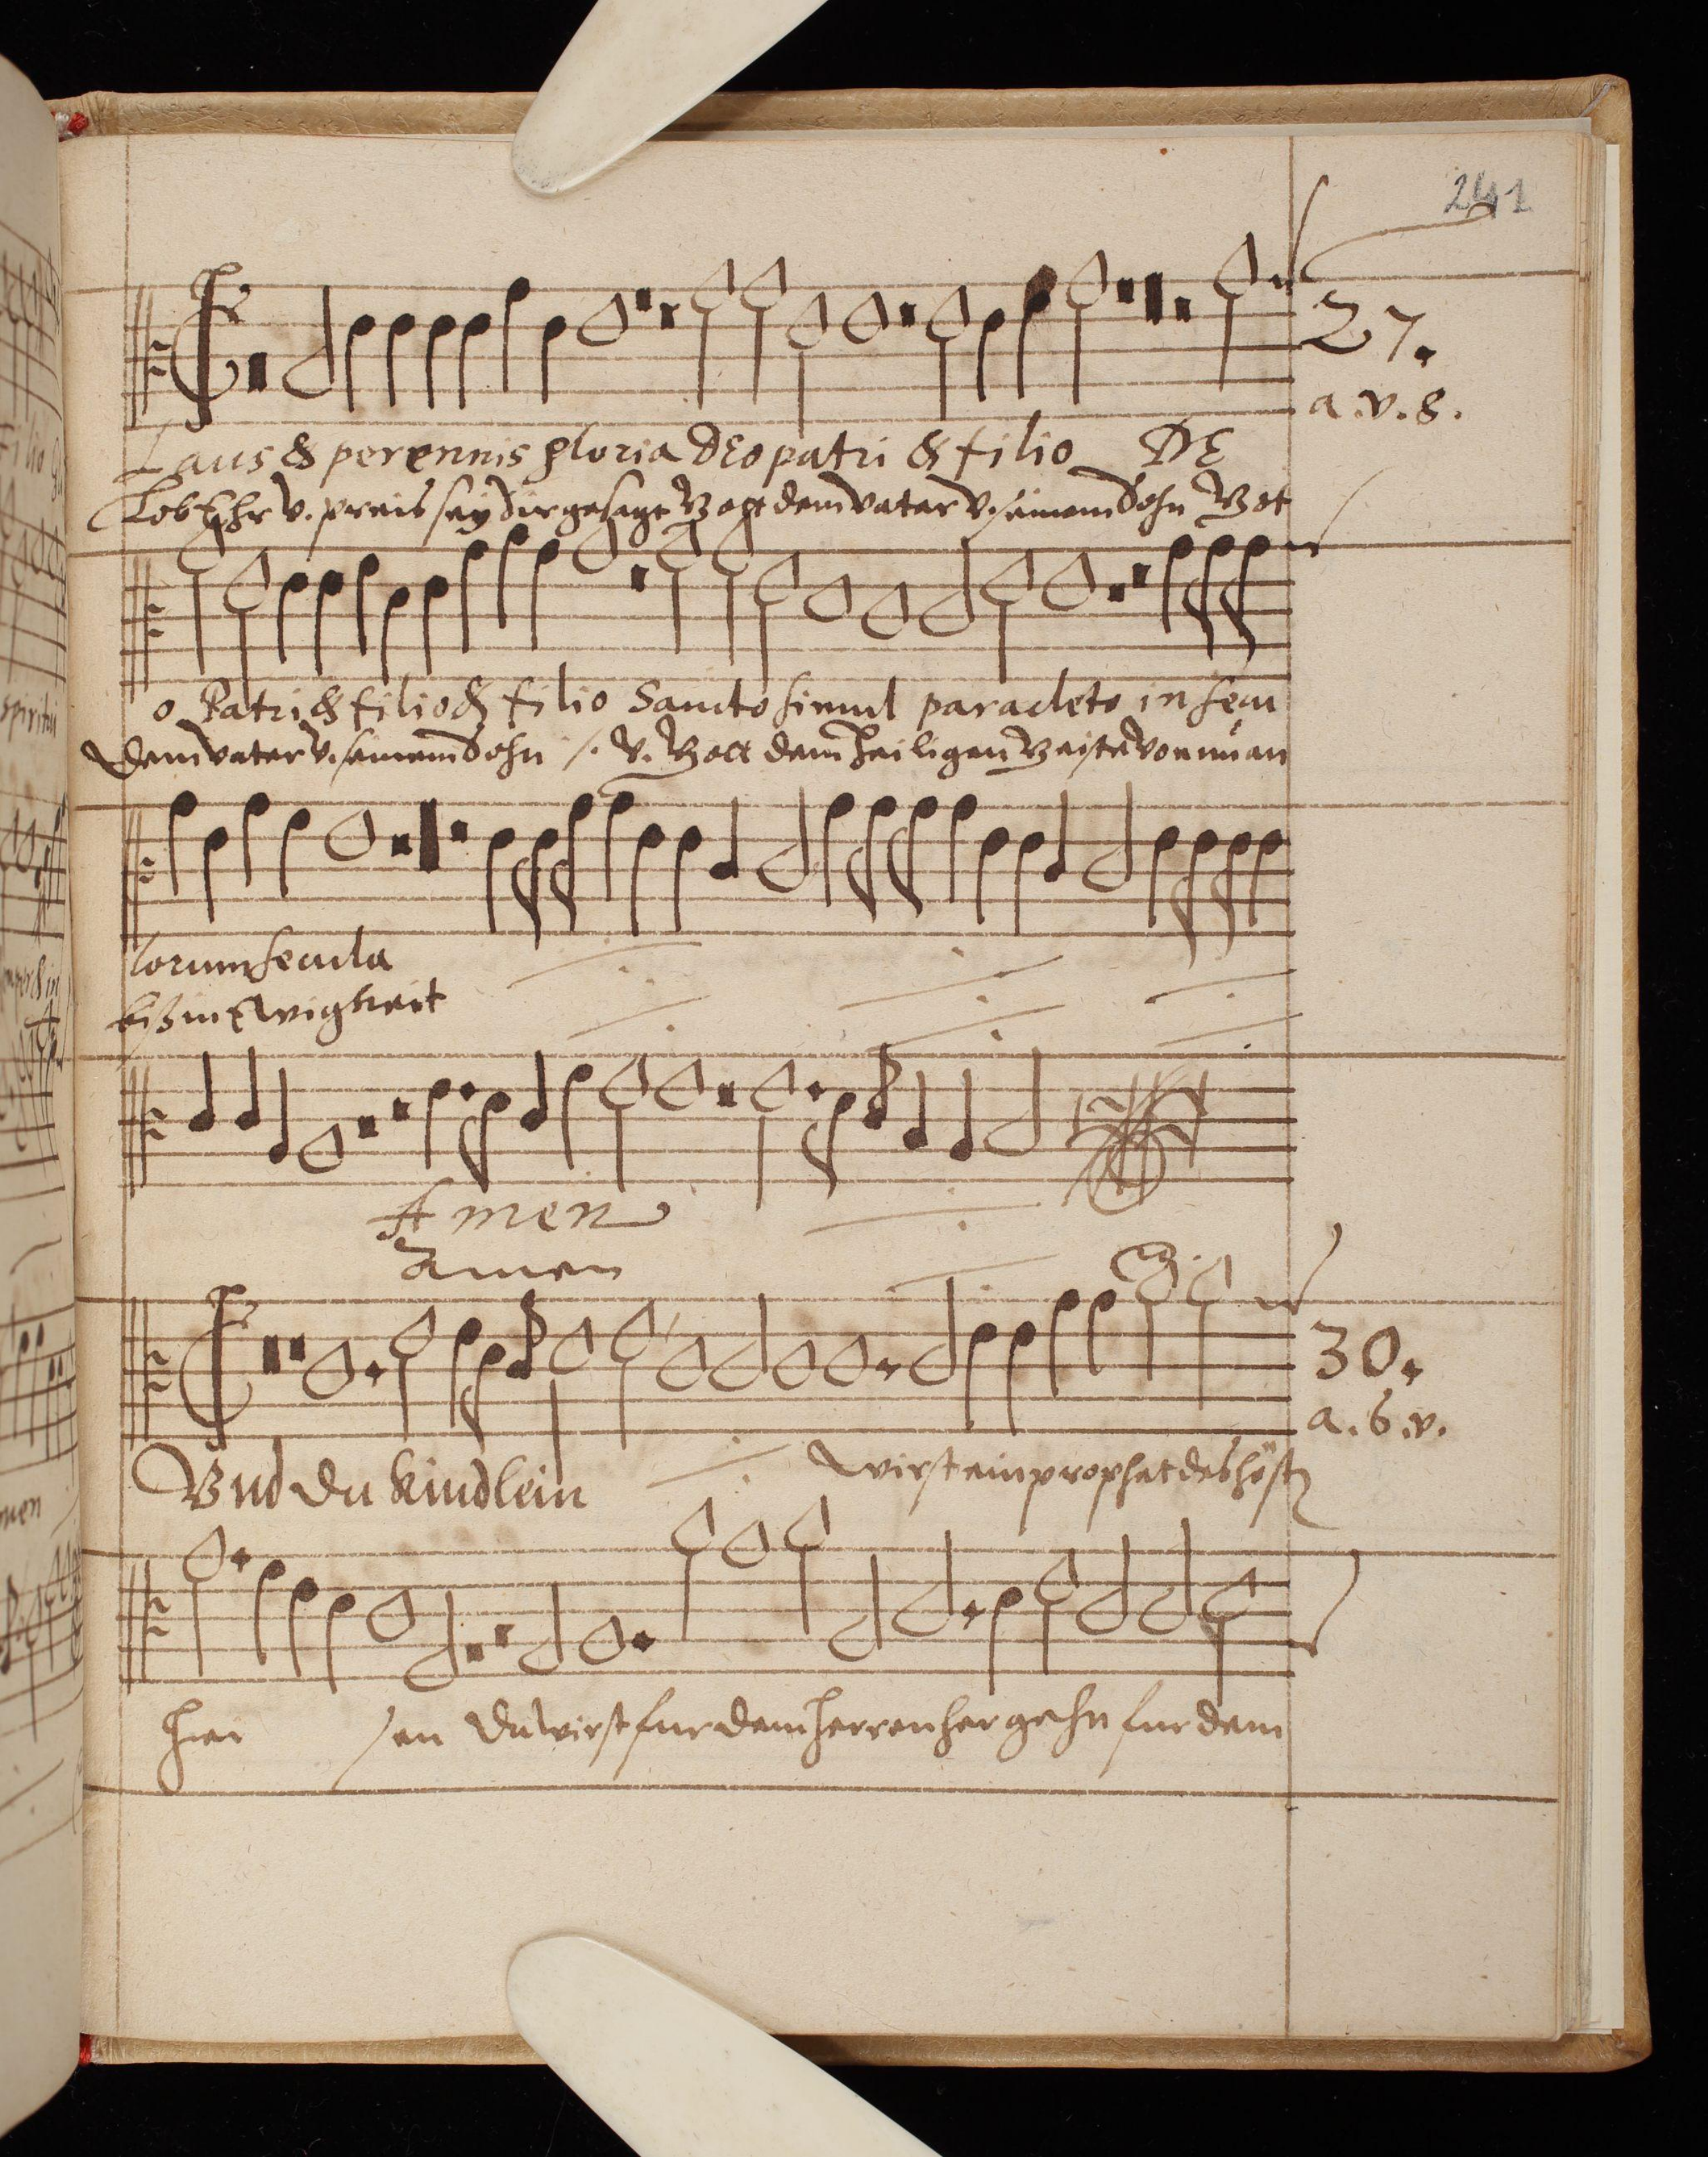 241
27.
a. v. 8.
Laus & perennis gloria DEo patri & filio DE
Lob Ehr v. preis sey dir gesagt Gott dem vater v. seinem Sohn Got
o Patri & filio & filio Sancto simul paracleto in secu
dem vater v. seinem Sohn /. v. Gott dem heiligen Geiste von nu an
lorum secula
biß in Ewigkeit
Amen
Amen
30.
a. 6. v.
Vnd du kindlein wirst ein prophet des höst
hei sen du wirst fur dem herren her gehn fur dem